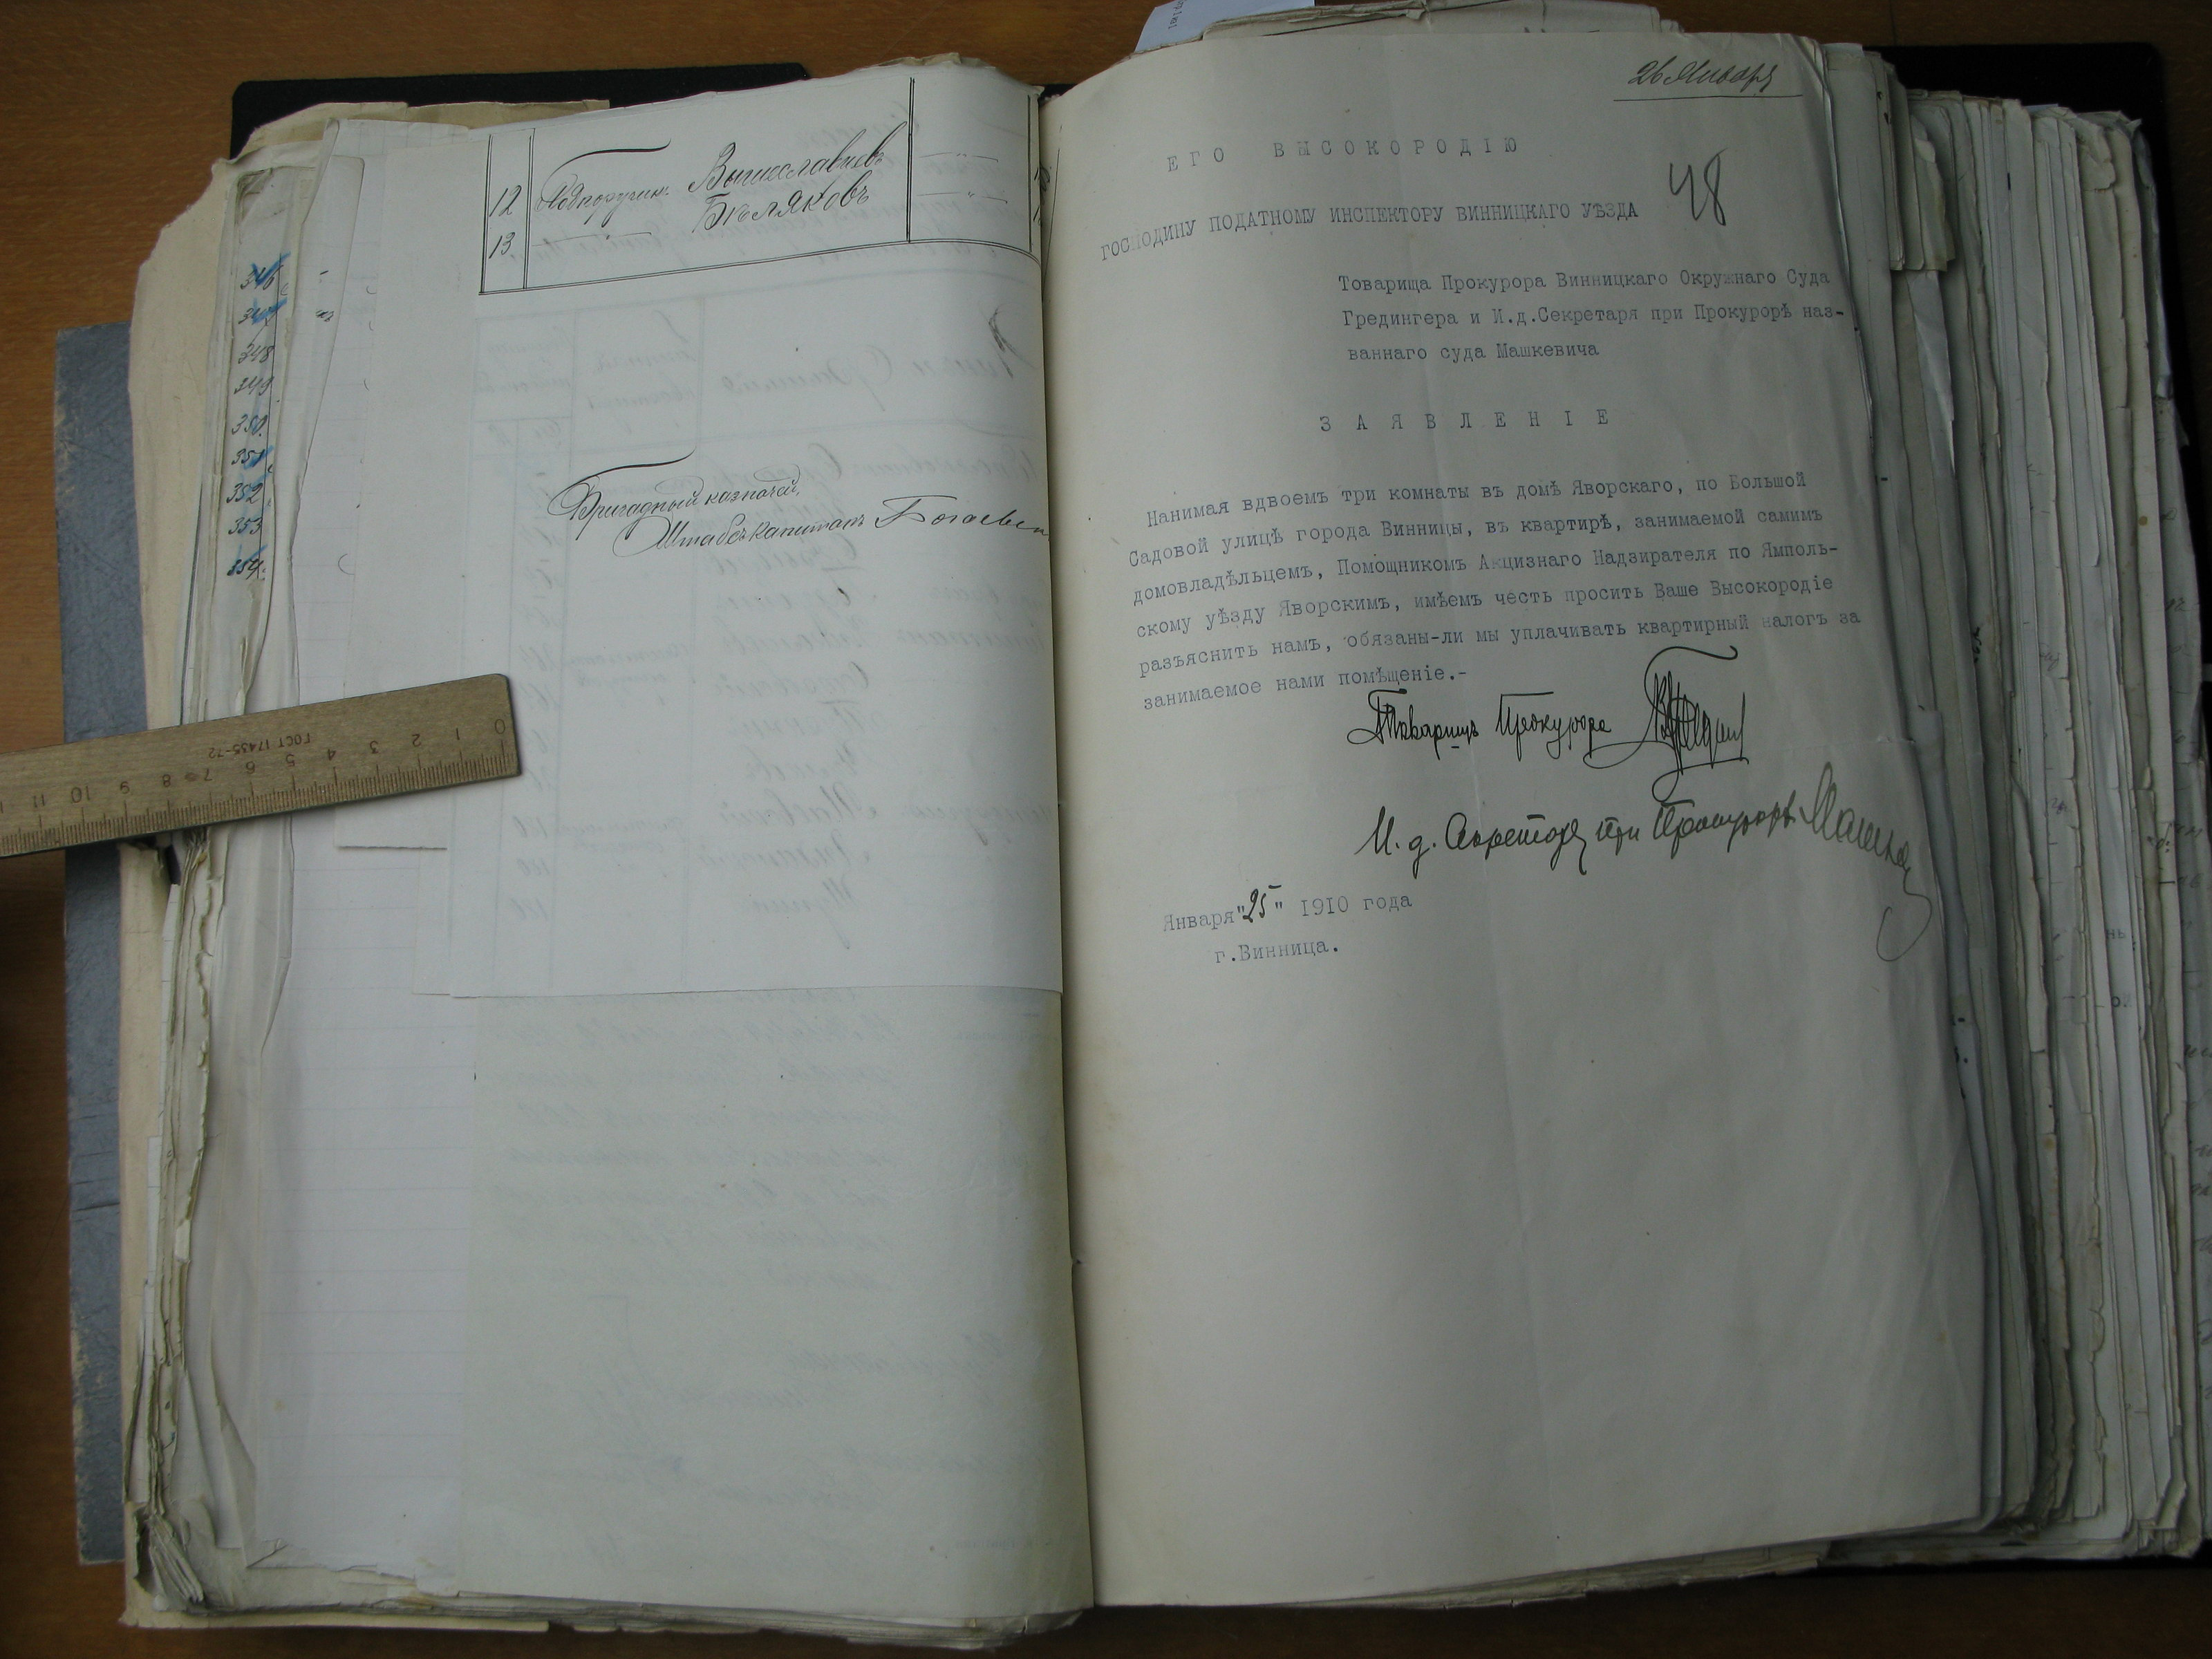 346
347
348
349
350.
351
352
353
354.
12 Подпоручик. Вышеславцевъ
13. Бѣляковъ
Бригадный казначей,
Штабсъ-капитанъ
0 1 2 3 4 5 6 7 8 9 10 11
ГОСТ 17435-72
26 Января
ЕГО ВЫСОКОРОДІЮ
48
ГОСПОДИНУ ПОДАТНОМУ ИНСПЕКТОРУ ВИННИЦКАГО УѢЗДА
Товарища Прокурора Винницкаго Окружнаго Суда
Гредингера и И.д.Секретаря при Прокурорѣ наз-
ваннаго суда Машкевича
ЗАЯВЛЕНІЕ
Нанимая вдвоемъ три комнаты въ домѣ Яворскаго, по Большой
Садовой улицѣ города Винницы, въ квартирѣ, занимаемой самимъ
домовладѣльцемъ, Помощникомъ Акцизнаго Надзирателя по Ямполь-
скому уѣзду Яворскимъ, имѣемъ честь просить Ваше Высокородіе
разъяснить намъ, обязаны-ли мы уплачивать квартирный налогъ за
занимаемое нами помѣщеніе.-
Товарищъ Прокурора
И. д. Секретаря при Прокурорѣ
Января "25" 1910 года
г.Винница.